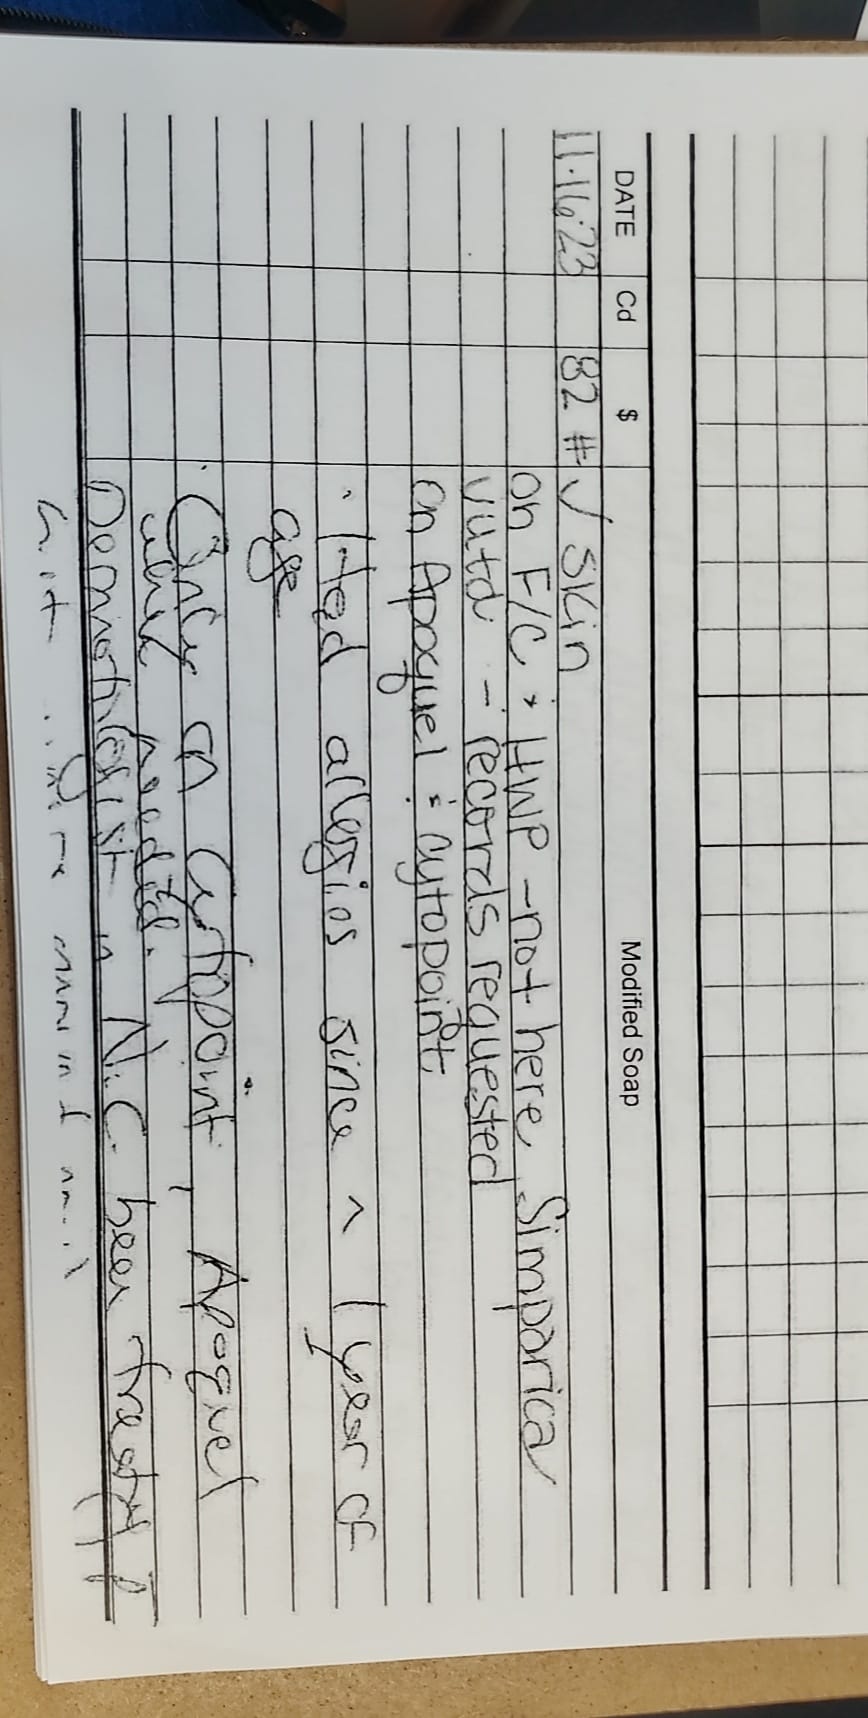 DATE Cd $ Modified Soap
11.16.23 82 # √ Skin
on F/C + HWP - not here Simparica
vutd - records requested
on Apoquel : cytopoint
· Hed allergies since ~ 1 year of
age
· Only on Cytopoint, Apoquel
when needed.
Dermatologist in N.C. been treating